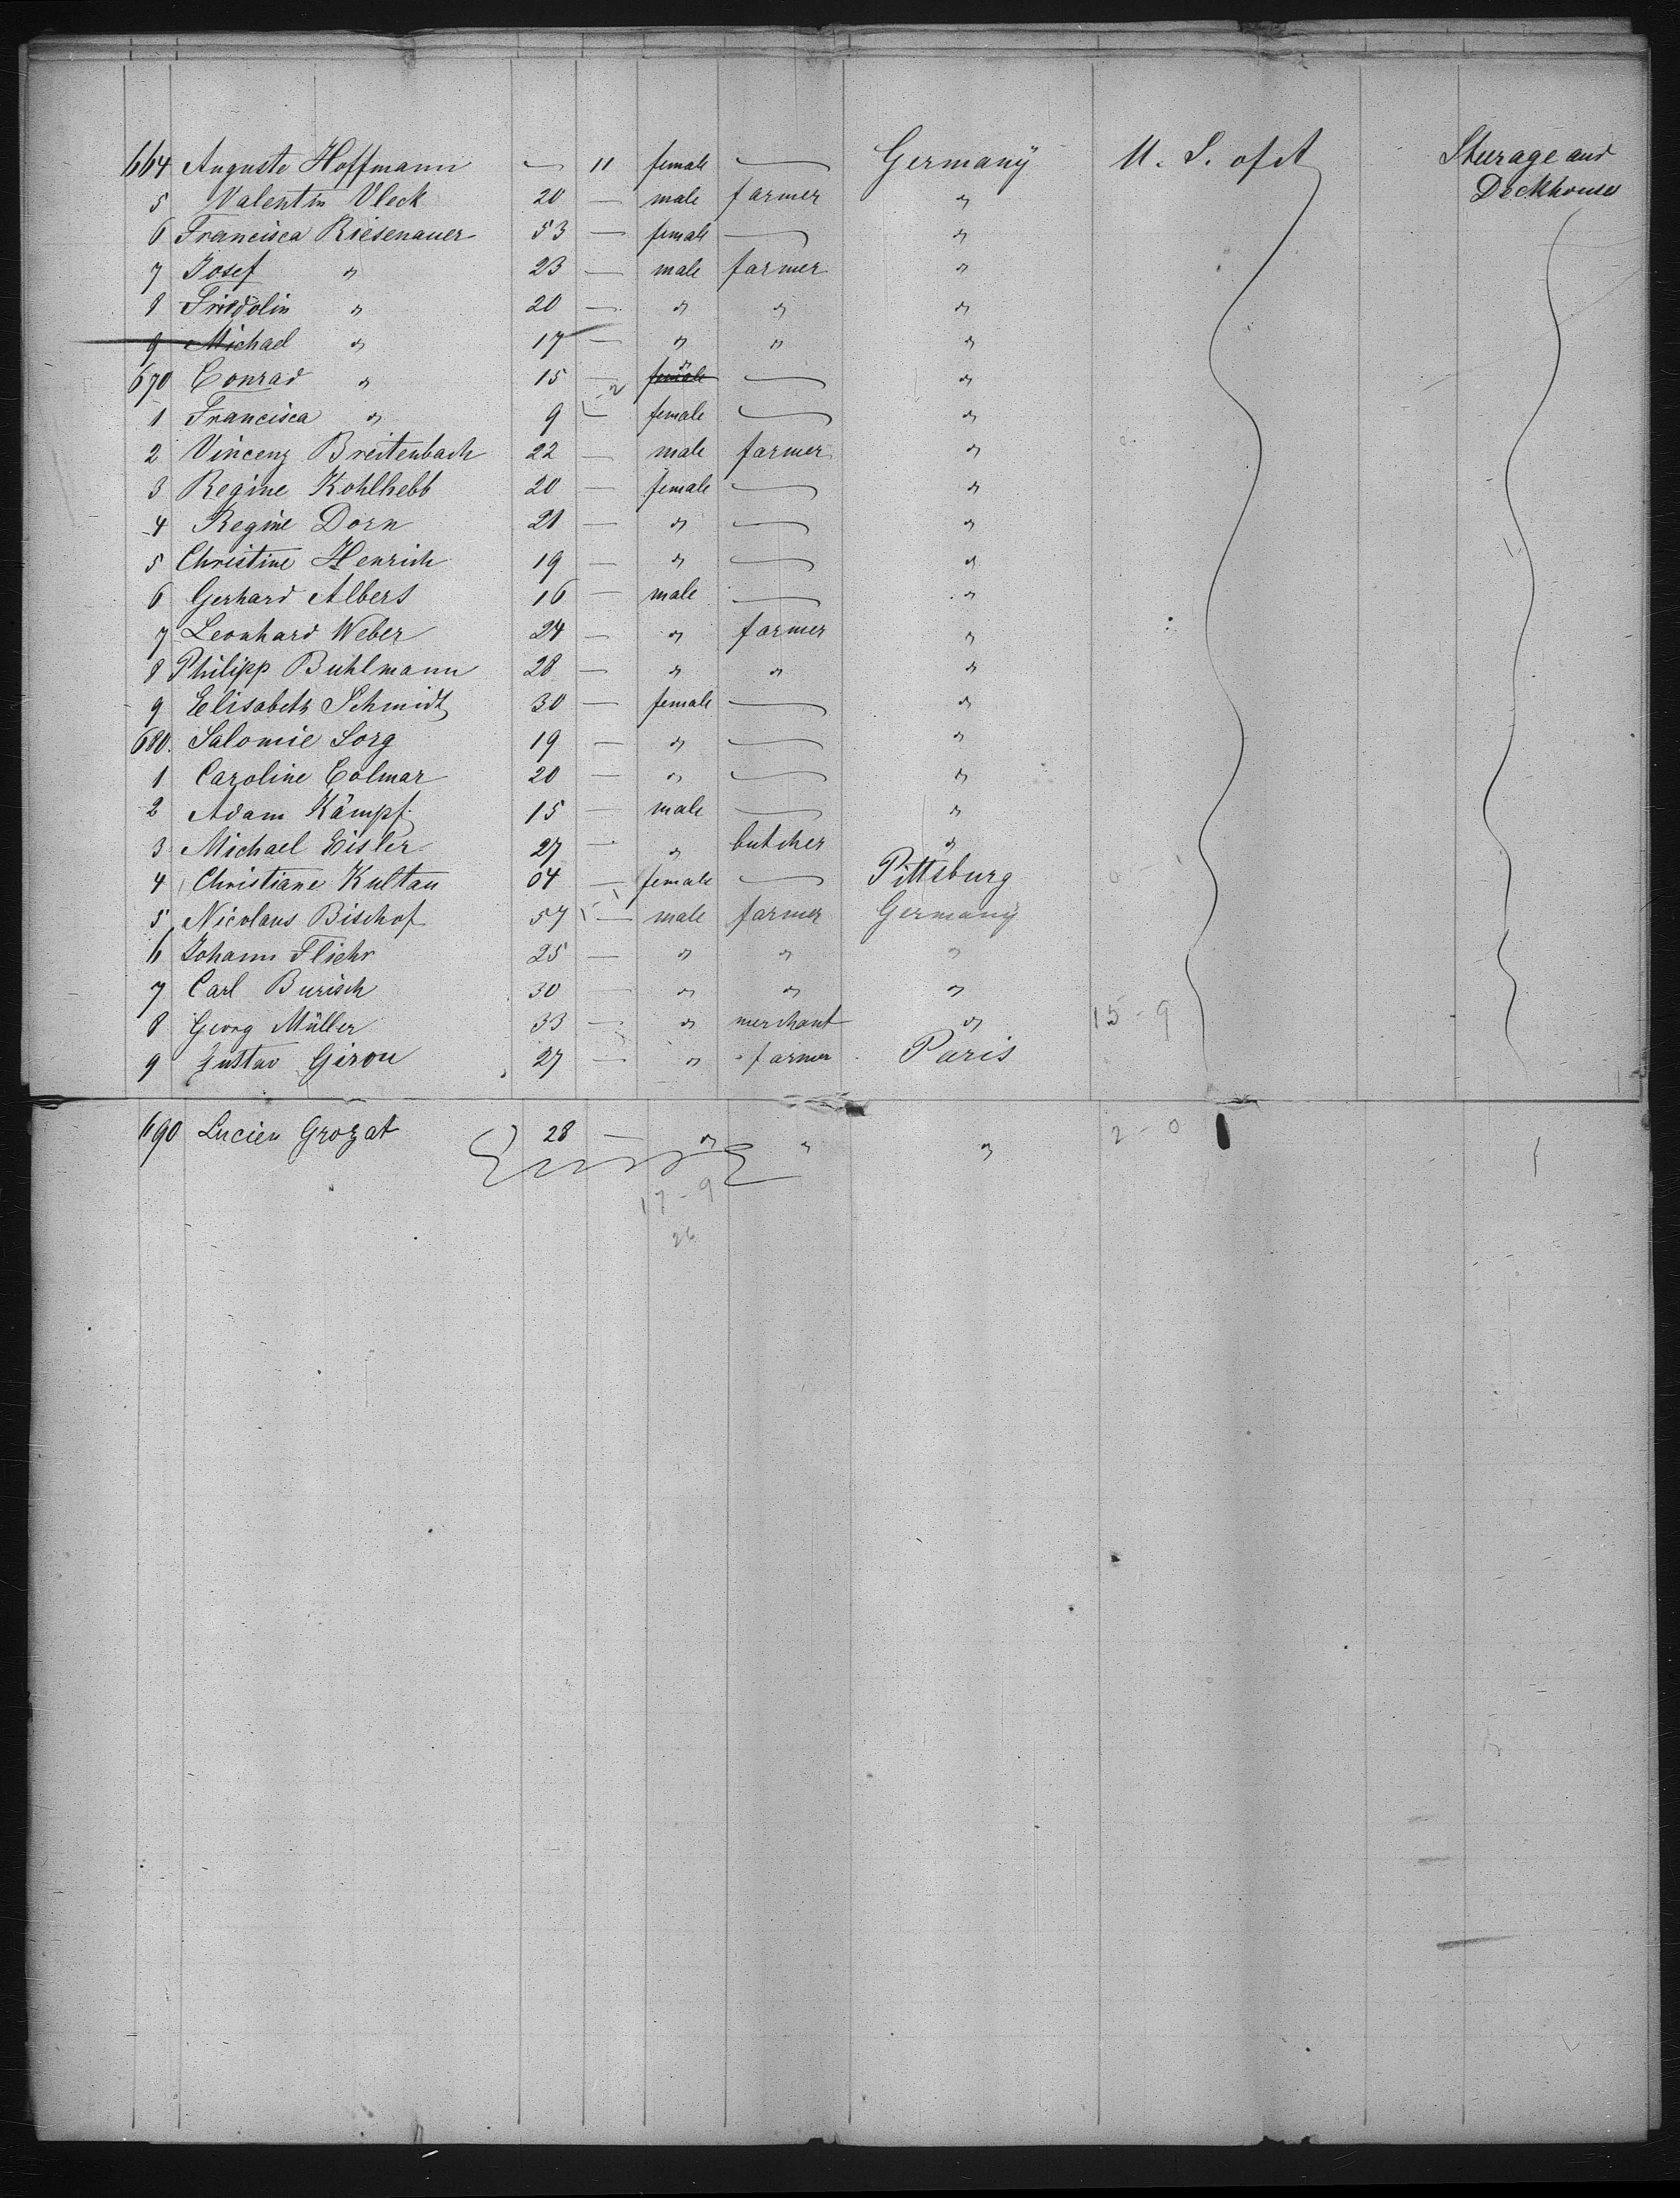 664 Auguste Hoffmann — 11 female — Germany U. S. of A Steurage and
Deckhouse
5 Valentin Vleck 20 — male farmer "
6 Francisca Riesenauer 53 — female — "
7 Josef " 23 — male farmer "
8 Fridolin " 20 — " " "
9 Michael " 17 — " " "
670 Conrad " 15 — female " — "
1 Francisca " 9 — female — "
2 Vincenz Breitenbach 22 — male farmer "
3 Regine Kohlhebb 20 — female — "
4 Regine Dorn 21 — " — "
5 Christine Henrich 19 — " — "
6 Gerhard Albers 16 — male — "
7 Leonhard Weber 24 — " farmer "
8 Philipp Buhlmann 28 — " " "
9 Elisabeth Schmidt 30 — female — "
680. Salomie Sorg 19 — " — "
1 Caroline Colmar 20 — " — "
2 Adam Kämpf 15 — male — "
3 Michael Eisler 27 — " butcher "
4 Christiane Kultau 04 — female — Pittsburg
5 Nicolaus Bischof 57 — male farmer Germany
6 Johann Fliehr 25 — " " "
7 Carl Burisch 30 — " " "
8 Georg Müller 33 — " merchant " 15-9
9 Gustav Girou 27 — " farmer Paris
690 Lucien Grozat 28 — " " " 2-0
17-9
26